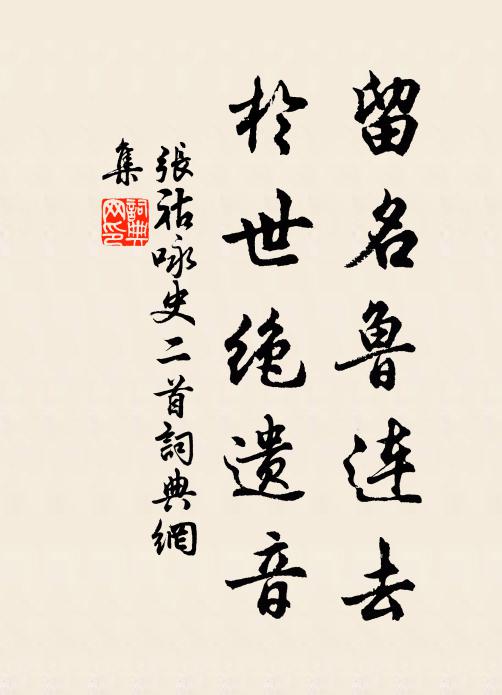 留名魯連去
於世绝遗音
張祜咏史二首詞典網
集
詞典网印